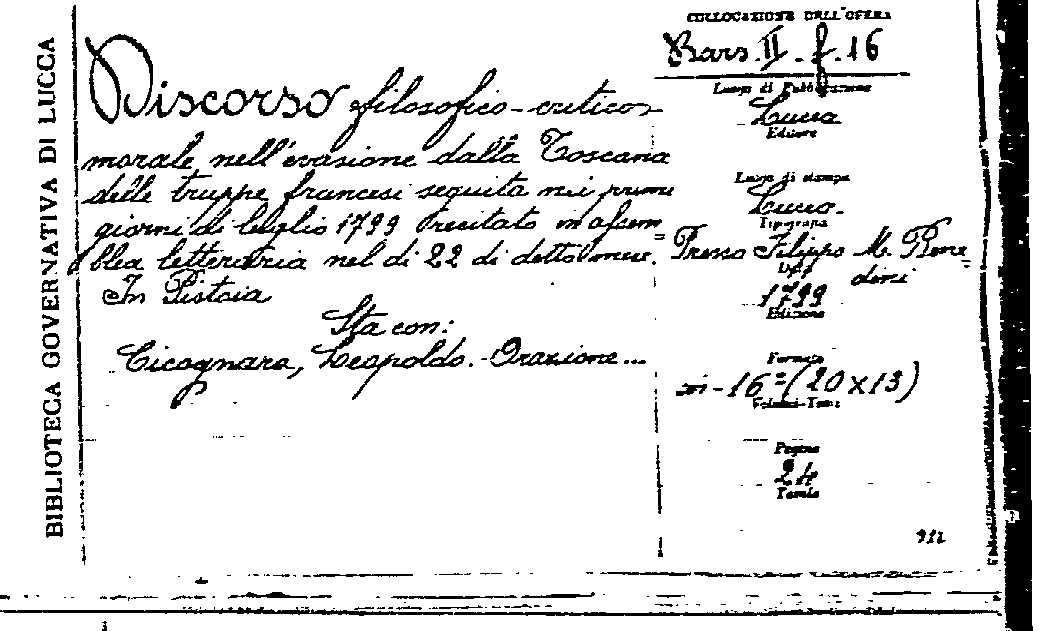 BIBLIOTECA GOVERNATIVA DI LUCCA
Discorso filosofico-critico
morale nell'evasione dalla Toscana
delle truppe francesi seguita nei primi
giorni di luglio 1799 recitato in assem=
blea letteraria nel di 22 di detto mese.
In Pistoia
Sta con:
Cicognara, Leopoldo.-Orazione...
COLLOCAZIONE DELL'OPERA
Bars.II-f.16
Luogo di Pubblicazione
Lucca
Editore
Luogo di stampa
Lucca-
Tipografia
Presso Filippo M. Bene=
dini
Data
1799
Edizione
Formato
in-16=(20x13)
Volumi-Tomi
Pagine
24
Tavole